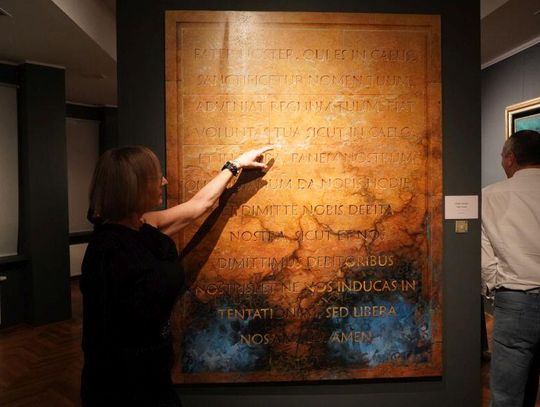 PATER NOSTER, QUI ES IN CAELIS,
SANCTIFICETUR NOMEN TUUM,
ADVENIAT REGNUM TUUM, FIAT
VOLUNTAS TUA SICUT IN CAELO
ET IN PANEM NOSTRUM
UM DA NOBIS HODIE
ET DIMITTE NOBIS DEBITA
NOSTRA, SICUT ET NOS
DIMITTIMUS DEBITORIBUS
NOSTRIS ET NE NOS INDUCAS IN
TENTATIONEM SED LIBERA
NOS AMEN